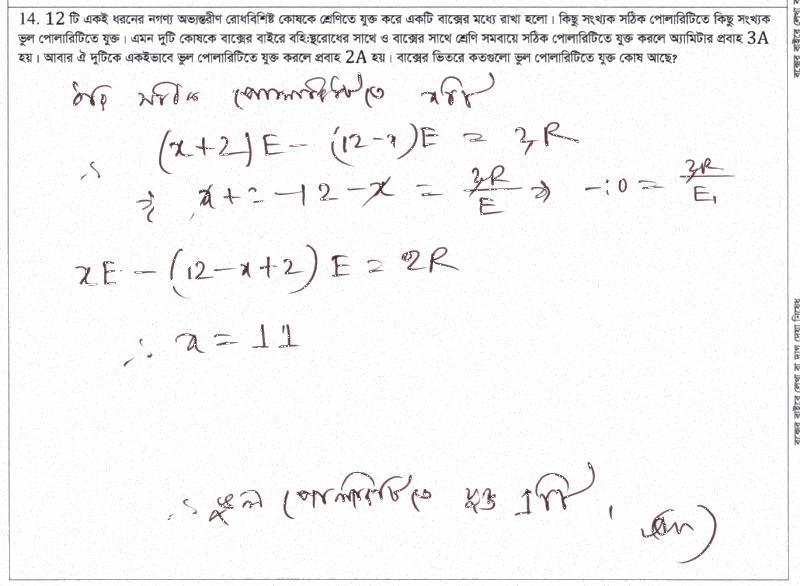 14. 12 টি একই ধরনের নগণ্য অভ্যন্তরীণ রোধবিশিষ্ট কোষকে শ্রেণিতে যুক্ত করে একটি বাক্সের মধ্যে রাখা হলো। কিছু সংখ্যক সঠিক পোলারিটিতে কিছু সংখ্যক
ভুল পোলারিটিতে যুক্ত। এমন দুটি কোষকে বাক্সের বাইরে বহিঃস্থরোধের সাথে ও বাক্সের সাথে শ্রেণি সমবায়ে সঠিক পোলারিটিতে যুক্ত করলে অ্যামিটার প্রবাহ 3A
হয়। আবার ঐ দুটিকে একইভাবে ভুল পোলারিটিতে যুক্ত করলে প্রবাহ 2A হয়। বাক্সের ভিতরে কতগুলো ভুল পোলারিটিতে যুক্ত কোষ আছে?
ধরি সঠিক পোলারিটিতে xটি
∴ (x+2)E - (12-x)E = 3R
⇒ x+2-12-x = 3R/E ⇒ -10 = 3R/E
xE - (12-x+2)E = 2R
∴ x = 11
∴ ভুল পোলারিটিতে যুক্ত 1টি। (Ans)